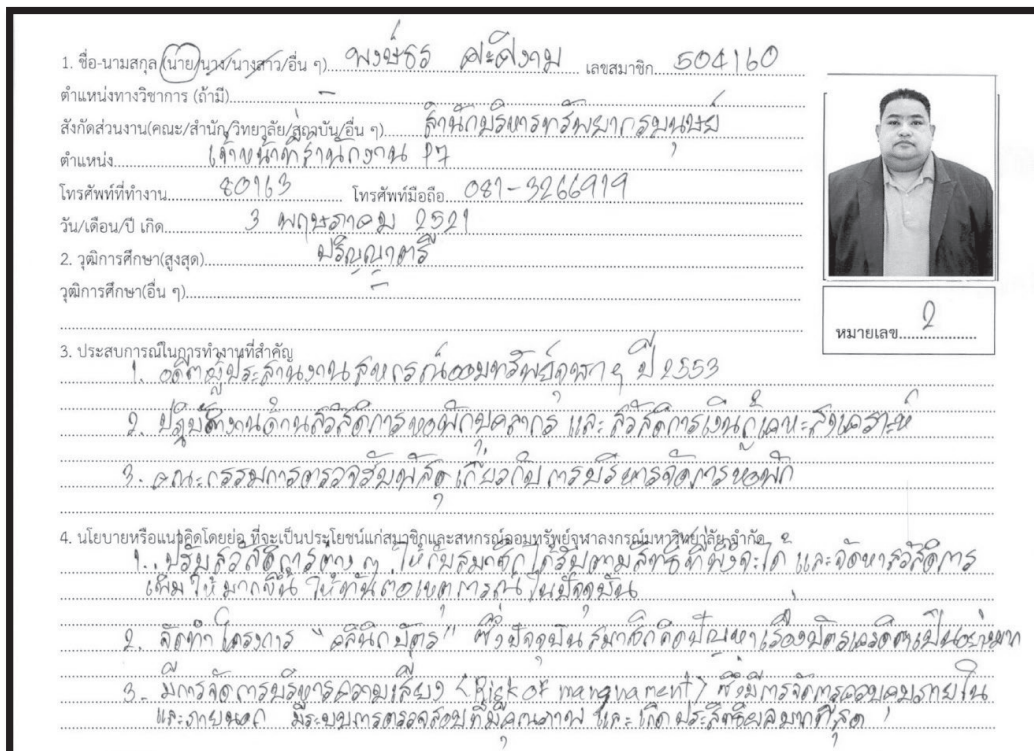 1. ชื่อ-นามสกุล (นาย/นาง/นางสาว/อื่น ๆ) พงษ์ธร คะดีงาม เลขสมาชิก 504160
ตำแหน่งทางวิชาการ (ถ้ามี) -
สังกัดส่วนงาน(คณะ/สำนัก/วิทยาลัย/สถาบัน/อื่น ๆ) สำนักบริหารทรัพยากรมนุษย์
ตำแหน่ง เจ้าหน้าที่สำนักงาน P7
โทรศัพท์ที่ทำงาน 80163 โทรศัพท์มือถือ 081-3266919
วัน/เดือน/ปี เกิด 3 พฤษภาคม 2521
2. วุฒิการศึกษา(สูงสุด) ปริญญาตรี
วุฒิการศึกษา(อื่น ๆ) -
หมายเลข 2
3. ประสบการณ์ในการทำงานที่สำคัญ
1. อดีตผู้ประสานงานสหกรณ์ออมทรัพย์จุฬาฯ ปี 2553
2. ปฏิบัติงานด้านสวัสดิการหอพักบุคลากร และ สวัสดิการเงินกู้เคหะสงเคราะห์
3. คณะกรรมการตรวจรับพัสดุ เกี่ยวกับการบริหารจัดการหอพัก
4. นโยบายหรือแนวคิดโดยย่อ ที่จะเป็นประโยชน์แก่สมาชิกและสหกรณ์ออมทรัพย์จุฬาลงกรณ์มหาวิทยาลัย จำกัด
1. ปรับสวัสดิการต่าง ๆ ให้กับสมาชิกได้รับตามสิทธิที่พึงจะได้ และจัดหาสวัสดิการ
เพิ่มให้มากขึ้น ให้ทันต่อเหตุการณ์ในปัจจุบัน
2. จัดทำโครงการ "คลินิกบัตร" ซึ่งปัจจุบันสมาชิกติดปัญหาเรื่องบัตรเครดิตเป็นอย่างมาก
3. มีการจัดการบริหารความเสี่ยง <Risk of mangnament> ซึ่งมีการจัดการควบคุมภายใน
และภายนอก มีระบบการตรวจสอบที่มีคุณภาพ และเกิดประสิทธิผลมากที่สุด